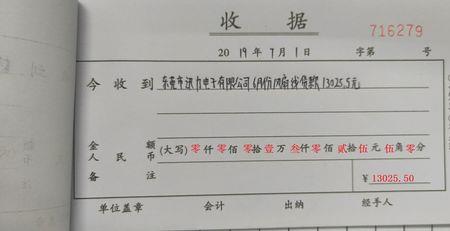 收 据
716279
2019年7月1日 字第 号
今收到 东莞市讯力电子有限公司6月份风扇线货款13025.5元
金额 人民币 (大写) 零仟零佰零拾壹万叁仟零佰贰拾伍元伍角零分
备注 ¥13025.50
单位盖章 会计 出纳 经手人